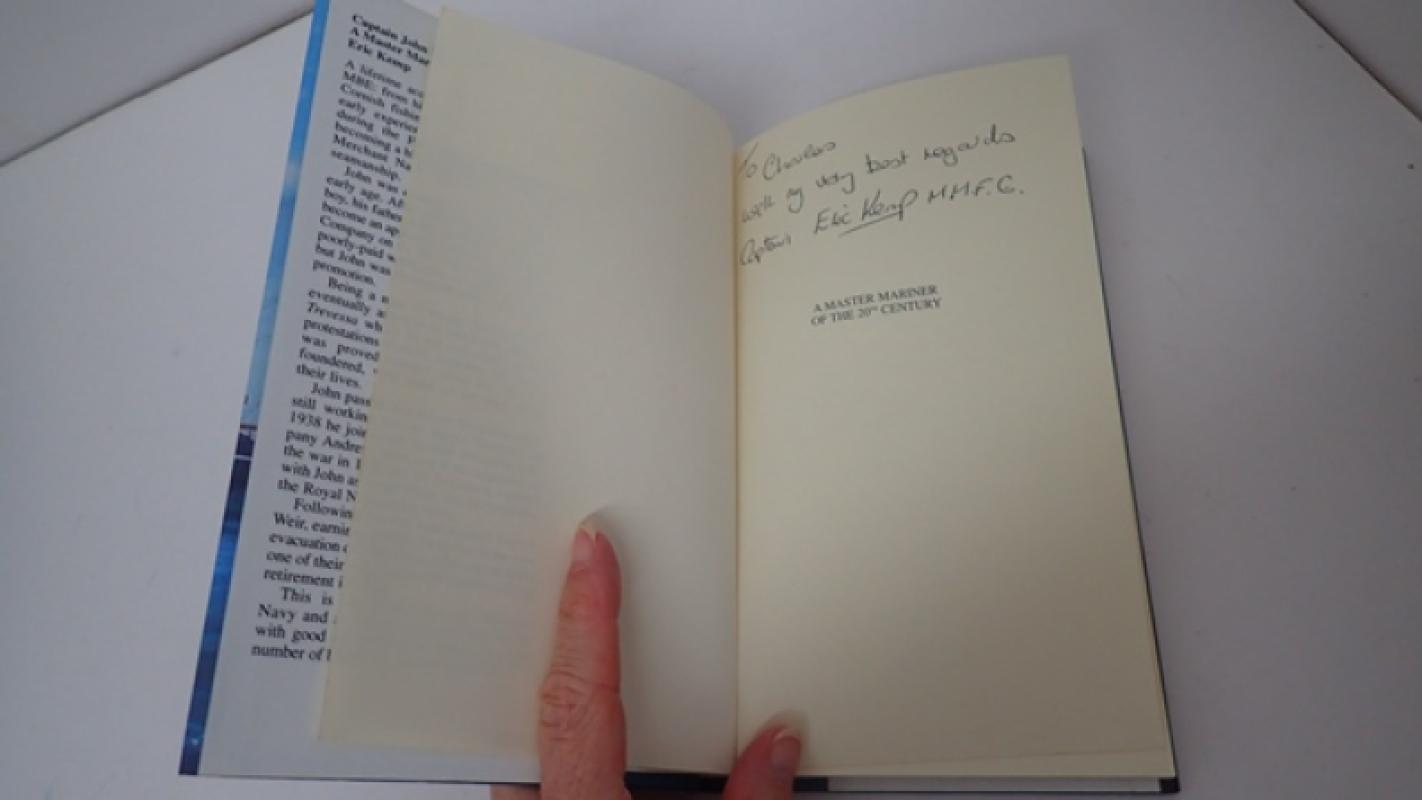 Captain John
A Master Mar
Eric Kemp
A lifetime
MBE: from
Cornish fishin
early experien
during the F
becoming a h
Merchant Na
seamanship.
John was
early age. Af
boy, his father
become an ap
Company on
poorly-paid w
but John was
promotion.
Being a
eventually a
Trevessa wh
protestations
was proved
foundered,
their lives.
John pass
still working
1938 he join
pany Andre
the war in 1
with John a
the Royal N
Followin
Weir, earnin
evacuation
one of their
retirement i
This is
Navy and
with good
number of
To Charles
with my very best regards
Captain Eric Kemp M.M.F.G.
A MASTER MARINER
OF THE 20TH CENTURY